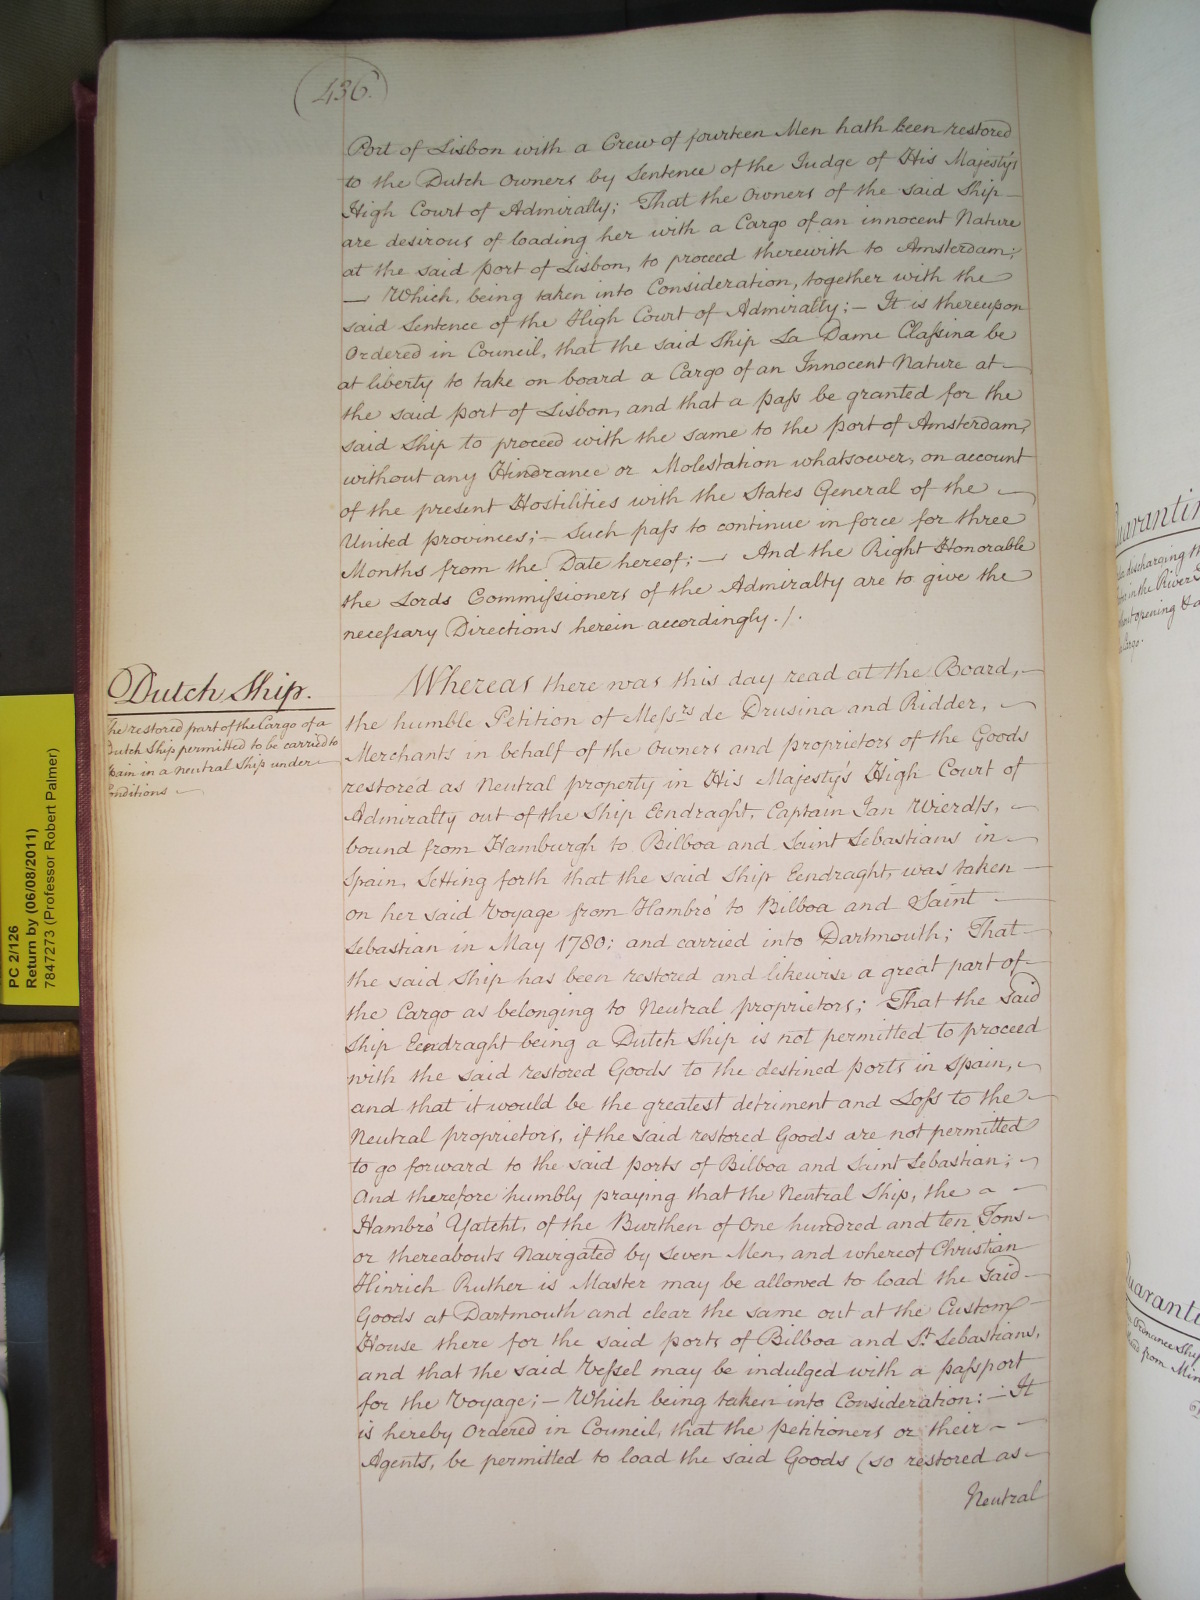 (436.)
Port of Lisbon with a Crew of fourteen Men hath been restored
to the Dutch Owners by Sentence of the Judge of His Majesty's
High Court of Admiralty; That the Owners of the said Ship
are desirous of loading her with a Cargo of an innocent Nature
at the said port of Lisbon, to proceed therewith to Amsterdam;
— Which, being taken into Consideration, together with the
said Sentence of the High Court of Admiralty; — It is thereupon
Ordered in Council, that the said Ship La Dame Claſsina be
at liberty to take on board a Cargo of an Innocent Nature at
the said port of Lisbon, and that a paſs be granted for the
said Ship to proceed with the same to the port of Amsterdam,
without any Hindrance or Molestation whatsoever, on account
of the present Hostilities with the States General of the
United provinces; — Such paſs to continue in force for three
Months from the Date hereof; — And the Right Honorable
the Lords Commiſsioners of the Admiralty are to give the
neceſsary Directions herein accordingly. /.
Dutch Ship.
The restored part of the Cargo of a
Dutch Ship permitted to be carried to
Spain in a neutral Ship under
Conditions
Whereas there was this day read at the Board,
the humble Petition of Meſsrs de Drusina and Ridder,
Merchants in behalf of the Owners and proprietors of the Goods
restored as Neutral property in His Majesty's High Court of
Admiralty out of the Ship Eendraght, Captain Jan Wierdts,
bound from Hamburgh to Bilboa and Saint Sebastians in
Spain, Setting forth that the said Ship Eendraght, was taken
on her said Voyage from Hambro' to Bilboa and Saint
Sebastian in May 1780; and carried into Dartmouth; That
the said Ship has been restored and likewise a great part of
the Cargo as belonging to Neutral proprietors; That the said
Ship Eendraght being a Dutch Ship is not permitted to proceed
with the said restored Goods to the destined ports in Spain,
and that it would be the greatest detriment and Loſs to the
Neutral proprietors, if the said restored Goods are not permitted
to go forward to the said ports of Bilboa and Saint Sebastian;
And therefore humbly praying that the Neutral Ship, the a
Hambro' Yatcht, of the Burthen of One hundred and ten Tons
or thereabouts Navigated by Seven Men, and whereof Christian
Hinrich Ruther is Master may be allowed to load the said
Goods at Dartmouth and clear the same out at the Custom
House there for the said ports of Bilboa and St. Sebastians,
and that the said Veſsel may be indulged with a paſsport
for the Voyage; — Which being taken into Consideration: — It
is hereby Ordered in Council, that the petitioners or their
Agents, be permitted to load the said Goods (so restored as
Neutral
PC 2/126
Return by (06/08/2011)
7847273 (Professor Robert Palmer)